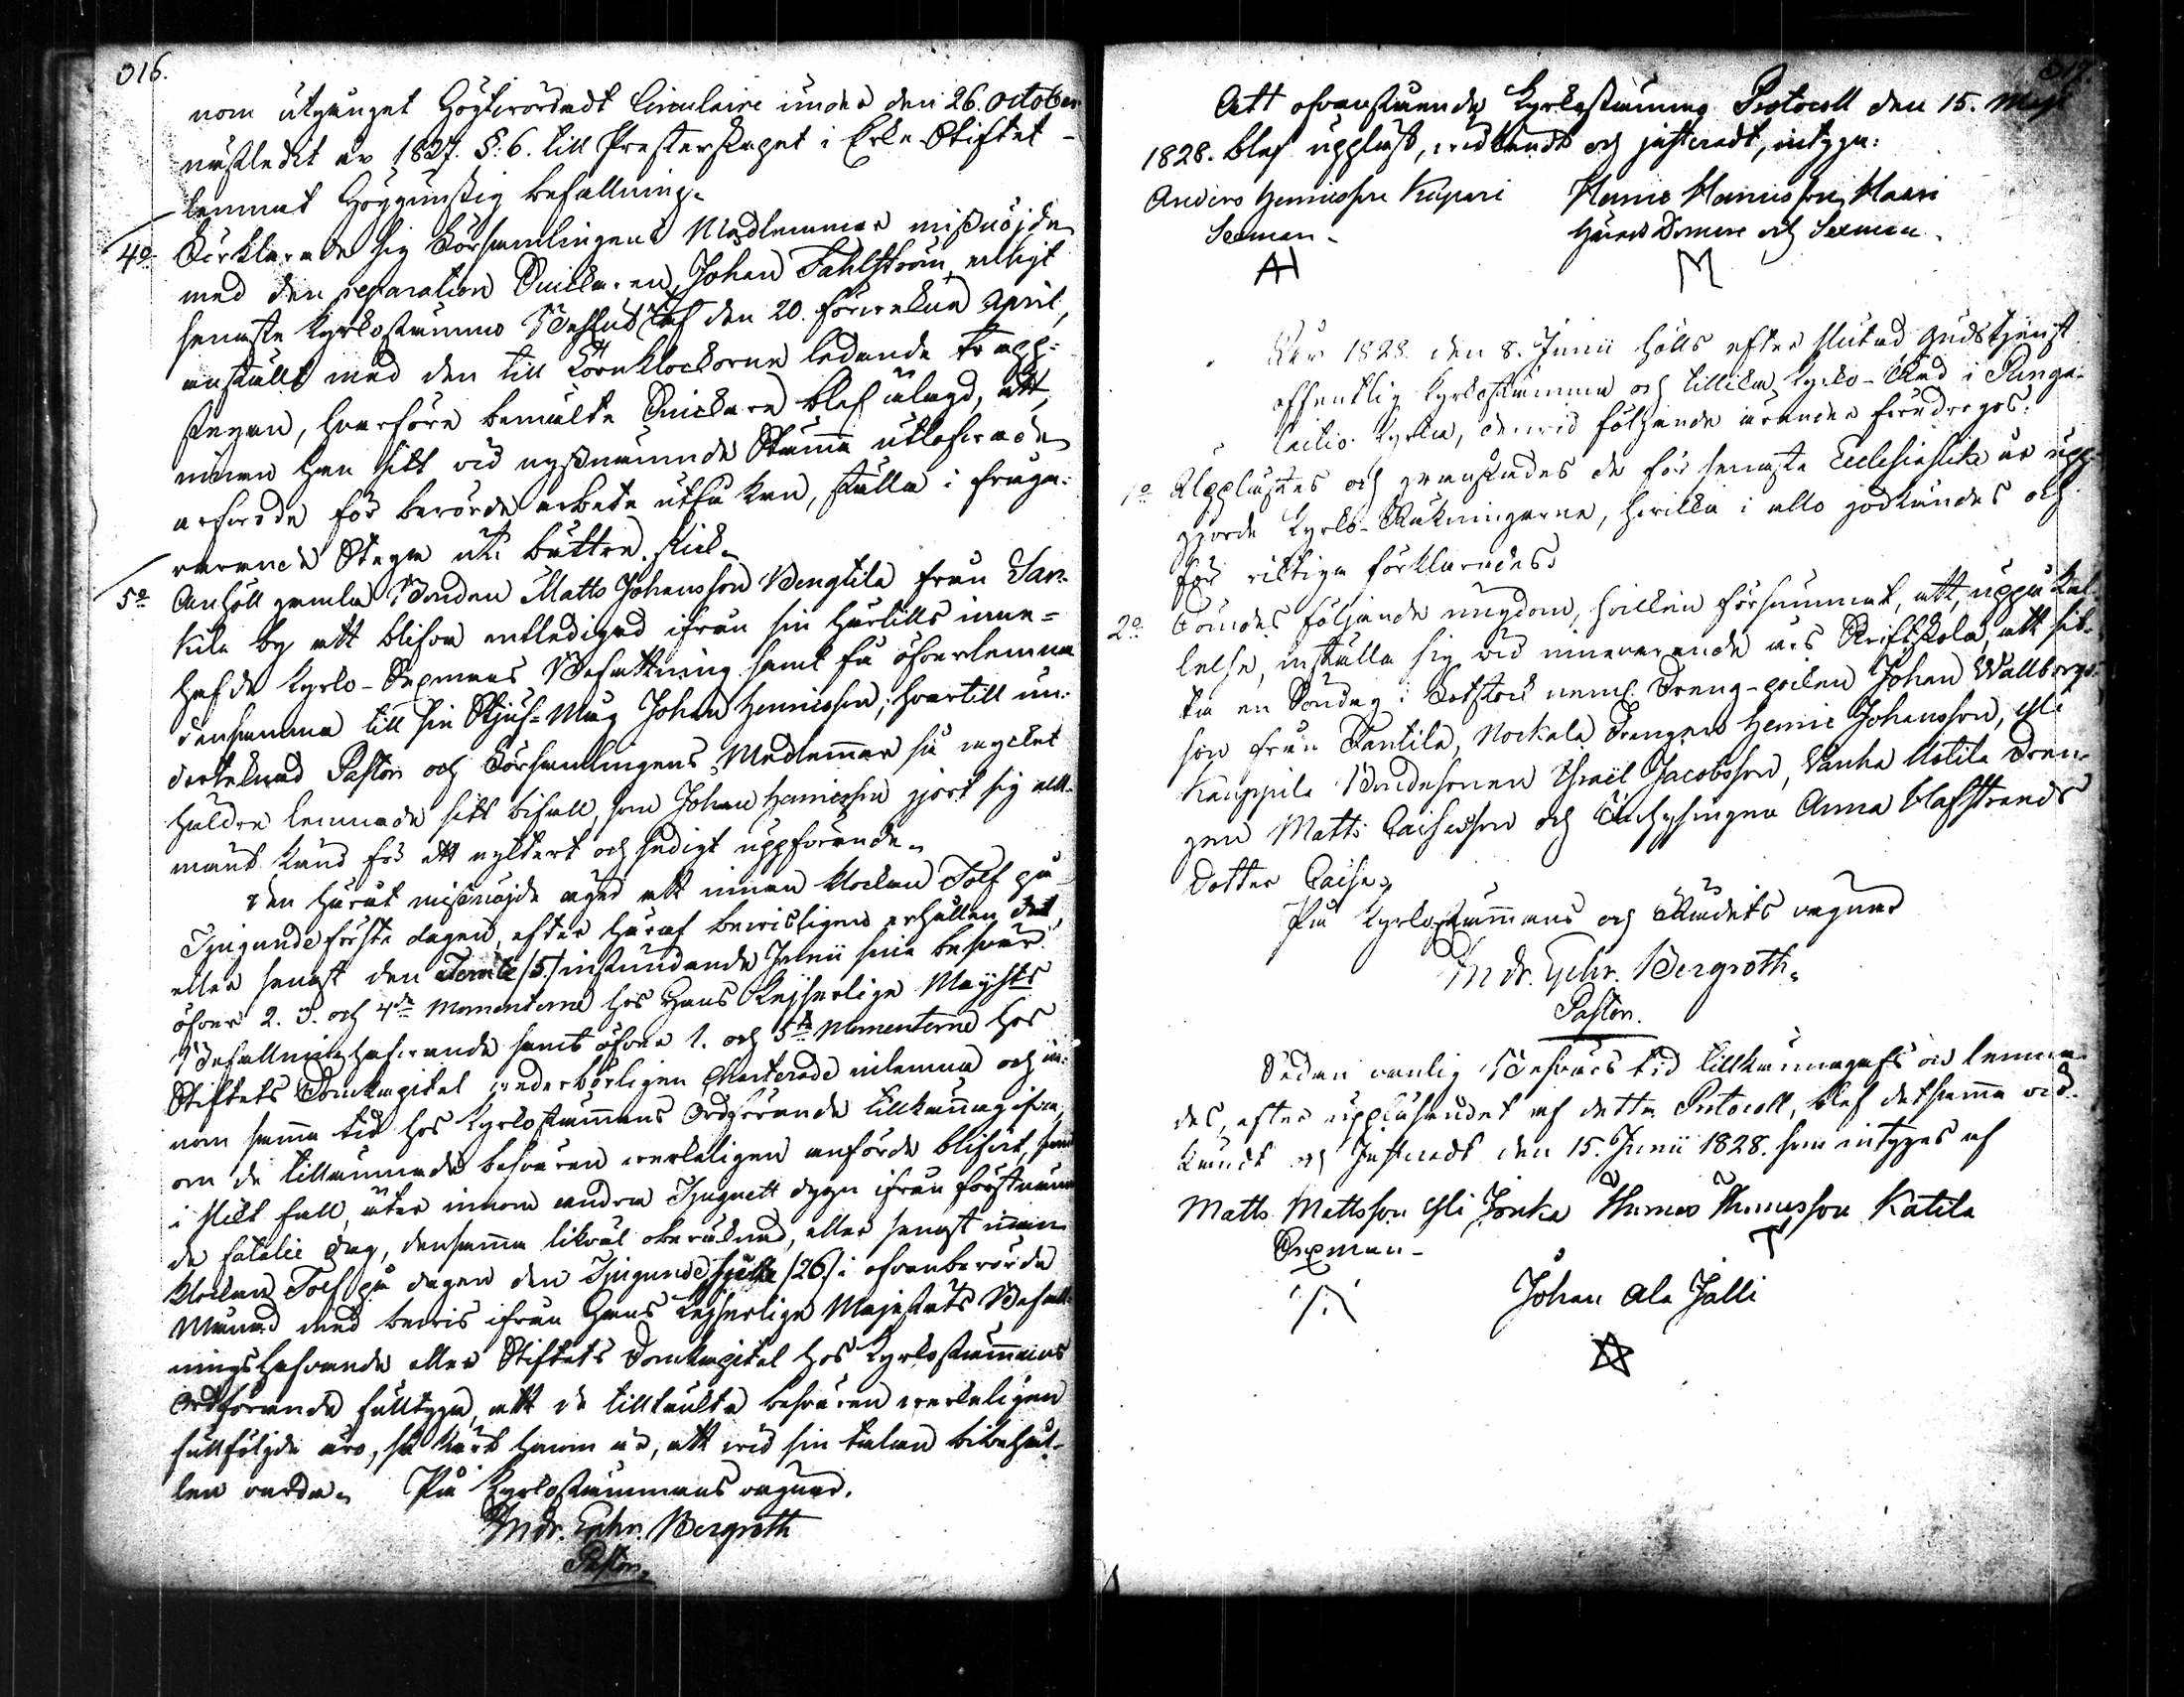 316.
nom utgånget Högtvördadt Circulaire under den 26. October
nästledit år 1827. §. 6. till Presterskapet i Erke-Stiftet
lemnat Höggunstig befallning.
4o Förklarade sig Församlingens Medlemmar missnöjde
med den reparation Snickaren Johan Fahlström, enligt
senaste Kyrkostämmo Beslut af den 20. förvekne April,
anställt med den till Tornklockorne ledande trapp-
stegen, hvarföre bemälte Snickare blef ålagd, att,
innan han sitt vid nyssnämnde Stämma utlofvade
arfvode för berörde arbete utfå kan, ställa i fråga-
varande Stege uti bättre skick.
5o Anhöll gamla Bonden Matts Johansson Bengtila från Sar-
kila by att blifva entledigad ifrån sin härtills inne-
hafde Kyrko-Sexmans Befattning samt få öfverlemna
densamma till sin Stjuf-Måg Johan Henricsson; hvartill un-
dertecknad Pastor och Församlingens Medlemmar så mycket
häldre lemnade sitt bifall, som Johan Henricsson gjort sig all-
mänt känd för ett nyktert och sedigt uppförande.
Den häråt missnöjde äger att innan klockan Tolf på
Tjugunde förste dagen, efter häraf bevisligen erhållen del,
eller senast den Femte /5/ instundande Junii sina besvär
öfver 2. 3. och 4de Momenterne hos Hans Kejserliga Majsts
Befallningshafvande samt öfver 1. och 5te Momenterne hos
Stiftets Domkapitel vederbörligen Charterade inlemna och in-
nom samma tid hos Kyrkostämmans Ordförande tillkännagifva,
om de tillämnade besvären verkeligen anförde blifvit, samt
i slikt fall, åter innom andra Tjuguett dygn ifrån förstnämn
de fatalie dag, densamma likväl oberäknad, eller senast innan
klockan Tolf på dagen den Tjugunde sjette /26/ i ofvanberörde
Månad med bevis ifrån Hans Kejserliga Majestäts Befall-
ningshafvande eller Stiftets Domkapitel hos Kyrkostämmans
Ordförande fulltyga, att de tilltänkta besvären verkeligen
fullföljde äro, så kärt honom är, att vid sin talan bibehål-
len varda. På Kyrkostämmans vägnar.
Andr. Ephr. Bergroth
Pastor.
317.
Att ofvanstående Kyrkostämmo Protocoll den 15. Maji
1828. blef uppläst, vidkändt och justeradt, intyga:
Anders Henricsson Kupari Henric Henricsson Maari
Sexman. Härads Domare och Sexman.
AH M
År 1828. den 8. Junii hölls efter slutad Gudstjenst
offentlig Kyrkostämma och tillika Kyrko-Råd i Punga-
laitio Kyrka, dervid följande ärender föredrogos:
1o Upplästes och granskades de för senaste Ecclesiastike år upp-
gjorde Kyrko-Räkningarne, hvilka i allo godkändes och
för riktiga förklarades.
2o Dömdes följande ungdom, hvilken försummat, att, uppå kal-
lelse, inställa sig vid innevarande års Skriftskola, att sit-
ta en Söndag i Fotstock neml. Dreng-poiken Johan Wallbergs-
son från Tantila, Nockala Drengen Henric Johansson, Yli
Kauppila Bondesonen Israël Jacobsson, Vanha Uotila Dren-
gen Matts Caisasson och Inhysingen Anna Olafstrends
dotter Caisa.
På Kyrkostämmans och Rådets vägnar
Andr. Ephr. Bergroth.
Pastor.
Sedan vanlig Besvärs tid tillkännagafs och lemna-
des, efter uppläsandet af detta Protocoll, blef detsamma vid-
kändt och Justeradt den 15. Junii 1828. som intygas af
Matts Mattsson Yli Jonka Thomas Thomasson Katila
Sexman. T
Johan Ala Jalli